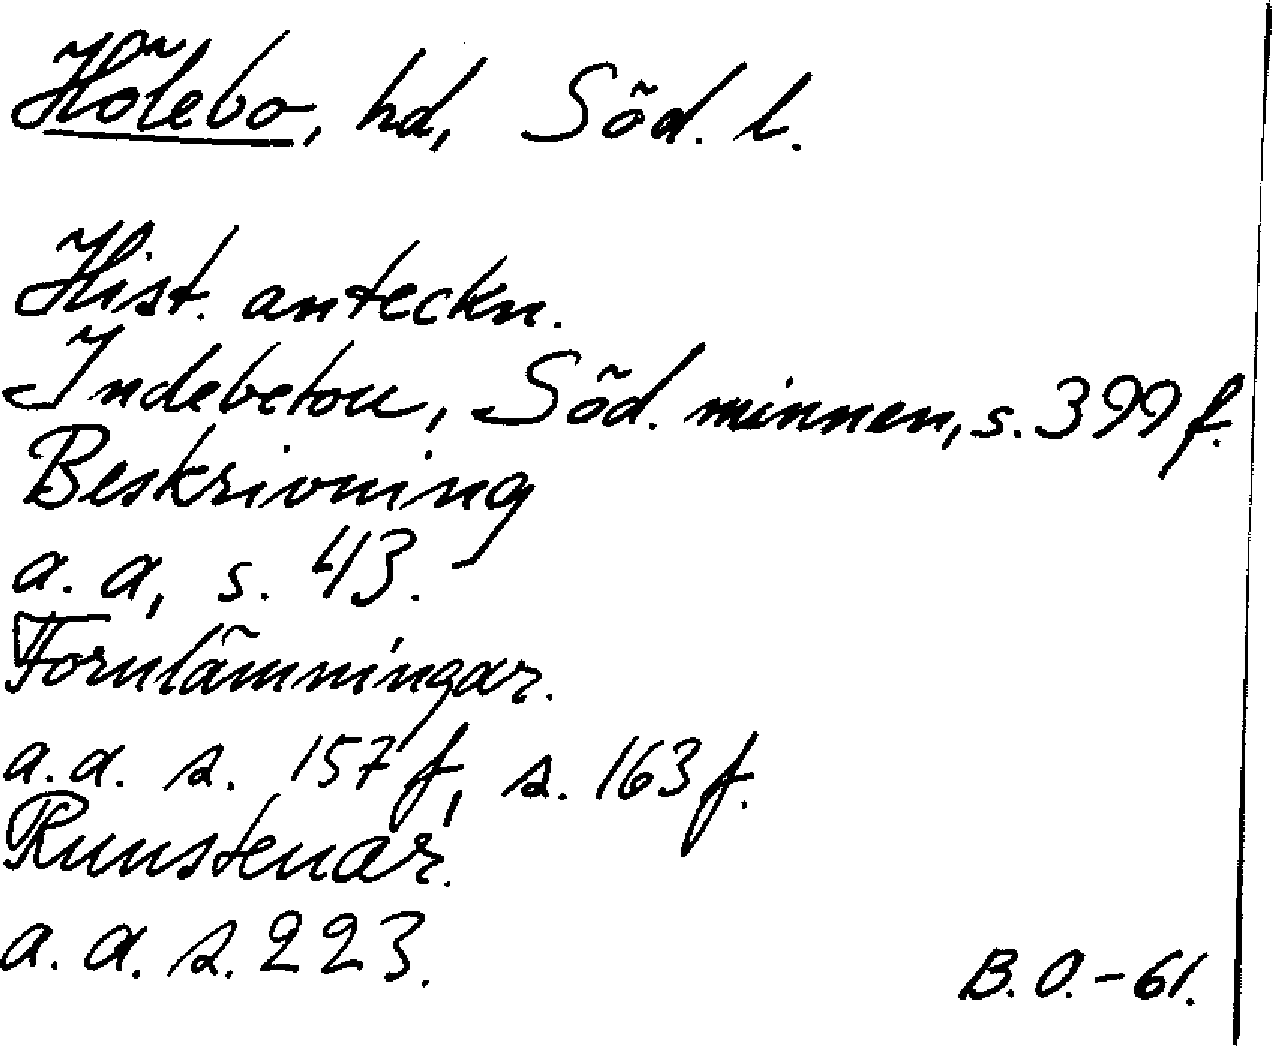 Hölebo, hd, Söd. l.
Hist. anteckn.
Indebetou, Söd. minnen, s. 399 f.
Beskrivning
a. a, s. 43.
Fornlämningar.
a. a. s. 157 f, s. 163 f.
Runstenar.
a. a. s. 223.
B. O. - 61.